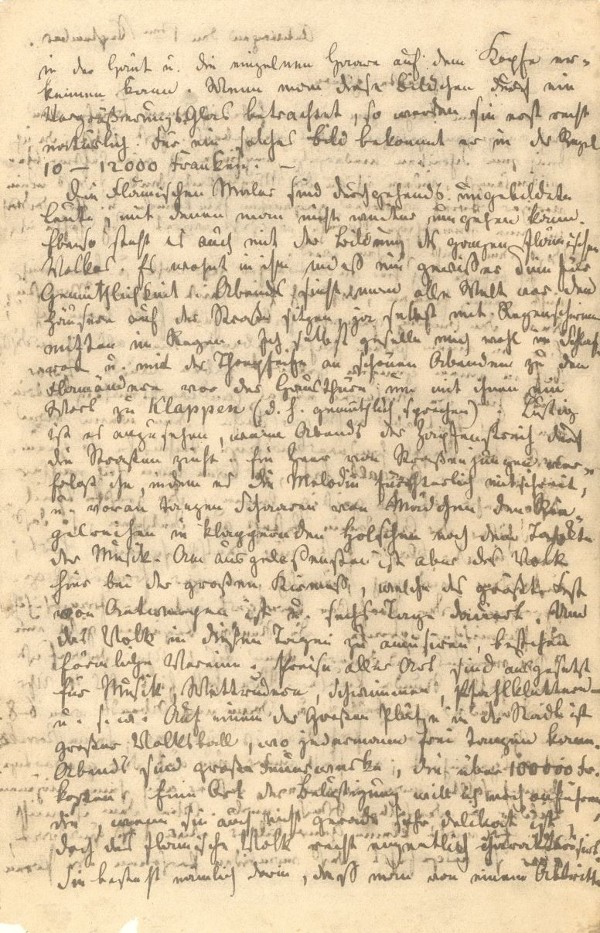 in der Haut u. die einzelnen Haare auf dem Kopfe er-
kennen kann. Wenn man diese Bildchen durch ein
Vergrößerungsglas betrachtet, so werden sie erst recht
natürlich. Für ein solches Bild bekommt er in der Regel
10 – 12000 Franken. –
Die Flämischen Maler sind durchgehends ungebildete
Leute, mit denen man nicht weiter umgehen kann.
Ebenso steht es auch mit der Bildung des ganzen Flämischen
Volkes. Es wohnt in ihm indeß ein gewißer Sinn für
Gemüthlichkeit. Abends sieht man alle Welt vor den
Häusern auf der Straße sitzen, ja selbst mit Regenschirmen
mitten im Regen. Ich selbst geselle mich wohl im
u. mit der Thonpfeife an schönen Abenden zu den
Flamändern vor der Hausthüre, um mit ihnen ein
zu Klappen (d. h. gemüthlich sprechen). Lustig
ist es anzusehen, wenn Abends der Zapfenstreich durch
die Straßen zieht. Ein Heer von Straßenjungen ver-
folgt ihn, indem es die Melodie fürchterlich mitschreit,
u. voran tanzen Schaaren von Mädchen den
in klappernden Holschen nach dem Takte
der Musik. Am ausgelaßensten ist aber das Volk
hier bei der großen Kirmeß, welche das größte Fest
von Antwerpen ist u. sechs Tage dauert. Um
das Volk in diesen Tagen zu amüsiren, bestehen
förmliche Vereine. Preise aller Art sind ausgesetzt
für Musik, Wettrudern, Schwimmen, Pfahlklettern
u. s. w. Auf einem der Großen Plätze in der Stadt ist
großer Volksball, wo jedermann frei tanzen kann.
Abends sind große Feuerwerke, die über 100000 Fr.
kosten. Eine Art der Belustigung will ich noch anführen
die, wenn sie auch nicht gerade sehr delikat ist,
doch das Flämische Volk recht eigentlich charakterisirt.
Sie besteht nämlich darin, daß man von einem